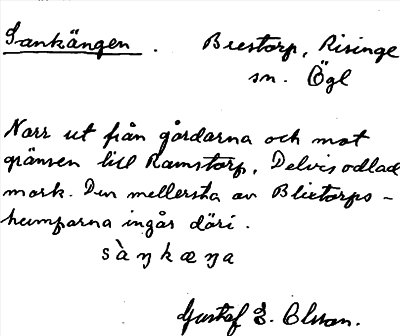 Sankängen. Brestorp, Risinge
sn. Ögl
Norr ut från gårdarna och mot
gränsen till Ramstorp, Delvis odlad
mark. Den mellersta av Blixtorps-
humparna ingår däri.
sàŋkæŋa
Gustaf E. Olsson.